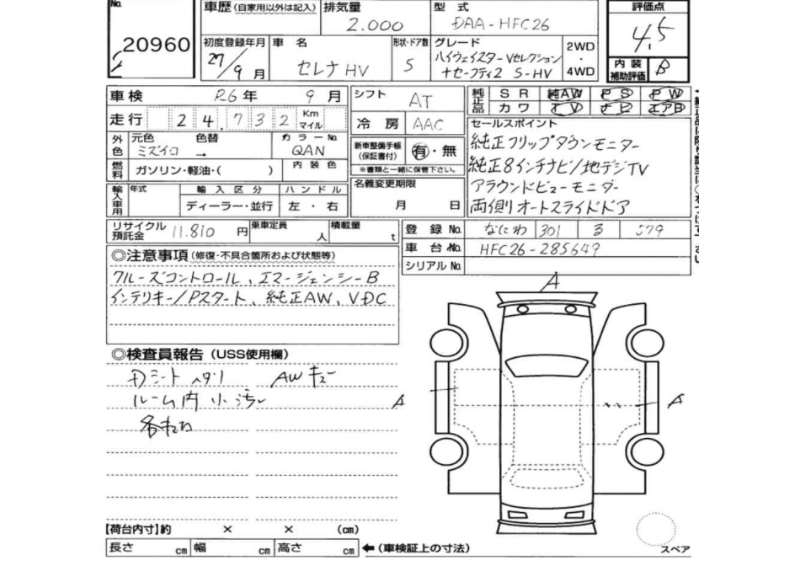 No.
20960
車歴(自家用以外は記入)
排気量
2.000
型式
DAA-HFC26
評価点
4.5
初度登録年月
27/9月
車名
セレナHV
形状・ドア数
5
グレード
ハイウェイスターVセレクション
ナセーフティ2 S-HV
2WD
・
4WD
内装
補助評価
B
車検
R6年 9月
シフト
AT
純正品
SR 純AW PS PW
カワ TV ナビ エアB
走行
24,732
Km
マイル
冷房
AAC
セールスポイント
純正フリップダウンモニター
純正8インチナビ/地デジTV
アラウンドビューモニター
両側オートスライドドア
外色
元色
色替
カラーNo.
ミズイロ →
QAN
新車整備手帳
(保証書付)
有・無
※書類と一緒に保管下さい。
燃料
ガソリン・軽油・( )
内装色
名義変更期限
月 日
輸入車用
年式
輸入区分
ハンドル
ディーラー・並行
左・右
リサイクル
預託金
11.810 円
乗車定員
人
積載量
t
登録No.
なにわ 301 る 579
車台No.
HFC26-285649
シリアルNo.
◎注意事項(修復・不具合箇所および状態等)
クルーズコントロール、エマージェンシーB
インテリキー/Pスタート、純正AW、VDC
◎検査員報告(USS使用欄)
Dシートヘタリ AWキズ
ルーム内小汚れ
A
A
A
【荷台内寸】約 × × (cm)
長さ cm 幅 cm 高さ cm
←(車検証上の寸法)
スペア